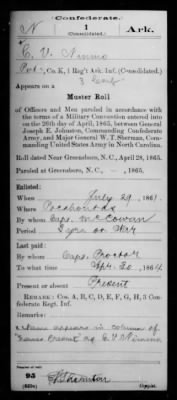 (Confederate.)
N 1 Ark.
(Consolidated.)
E. V. Nimmo
Pvt., Co. K, 1 Reg't Ark. Inf. (Consolidated.)
3 Conf
Appears on a
Muster Roll
of Officers and Men paroled in accordance with
the terms of a Military Convention entered into
on the 26th day of April, 1865, between General
Joseph E. Johnston, Commanding Confederate
Army, and Major General W. T. Sherman, Com-
manding United States Army in North Carolina.
Roll dated Near Greensboro, N.C., April 28, 1865.
Paroled at Greensboro, N.C., –, 1865.
Enlisted:
When July 29, 1861.
Where Pocahontas
By whom Capt. McCowan
Period 3 yrs or War
Last paid:
By whom Capt. Proctor
To what time Apr. 30, 1864
Present or absent Present
Remark: Cos. A, B, C, D, E, F, G, H, 3 Confederate Regt. Inf.
Name appears in column of
Names Present as E. V. Nimmo
95
(639c) Copyist.